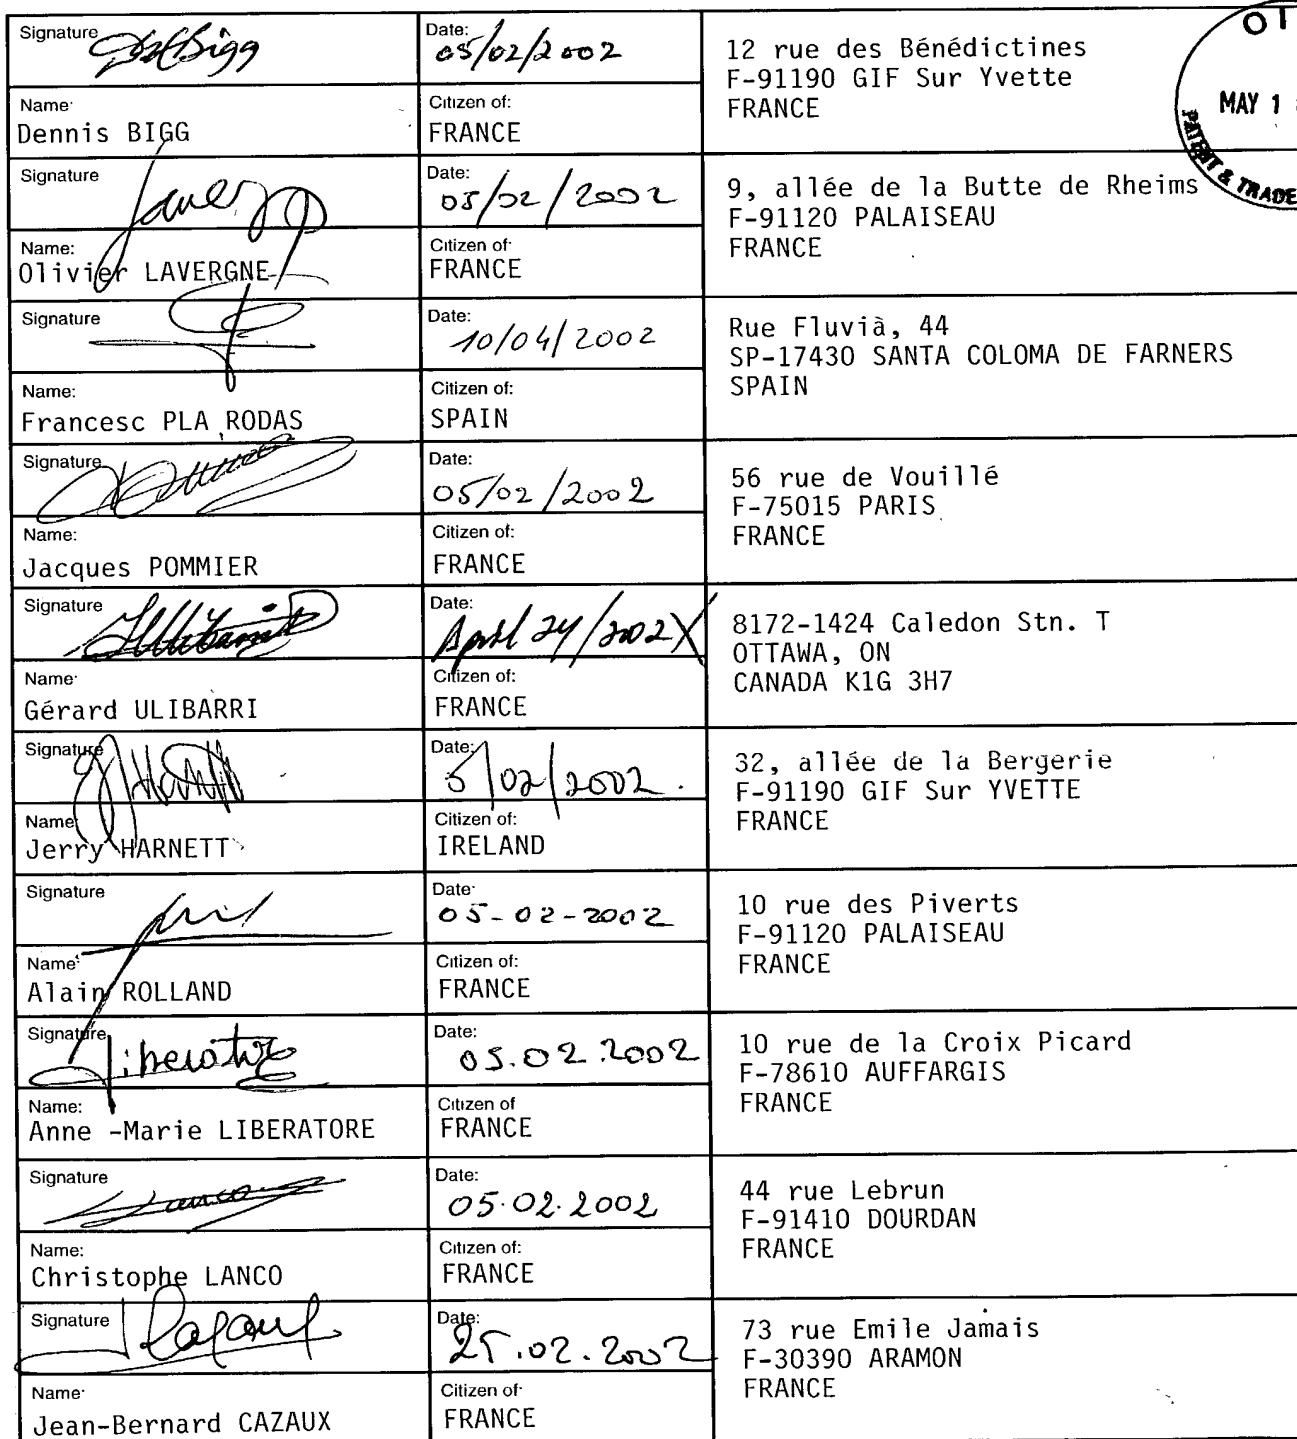 Signature
Date:
05/02/2002
12 rue des Bénédictines
F-91190 GIF Sur Yvette
FRANCE
MAY 1
PATENT & TRADE
Name:
Dennis BIGG
Citizen of:
FRANCE
Signature
Date:
05/02/2002
9, allée de la Butte de Rheims
F-91120 PALAISEAU
FRANCE
Name:
Olivier LAVERGNE
Citizen of:
FRANCE
Signature
Date:
10/04/2002
Rue Fluvià, 44
SP-17430 SANTA COLOMA DE FARNERS
SPAIN
Name:
Francesc PLA RODAS
Citizen of:
SPAIN
Signature
Date:
05/02/2002
56 rue de Vouillé
F-75015 PARIS
FRANCE
Name:
Jacques POMMIER
Citizen of:
FRANCE
Signature
Date:
April 24/2002
8172-1424 Caledon Stn. T
OTTAWA, ON
CANADA K1G 3H7
Name:
Gérard ULIBARRI
Citizen of:
FRANCE
Signature
Date:
5/02/2002.
32, allée de la Bergerie
F-91190 GIF Sur YVETTE
FRANCE
Name
Jerry HARNETT
Citizen of:
IRELAND
Signature
Date:
05-02-2002
10 rue des Piverts
F-91120 PALAISEAU
FRANCE
Name:
Alain ROLLAND
Citizen of:
FRANCE
Signature
Liberatore
Date:
05.02.2002
10 rue de la Croix Picard
F-78610 AUFFARGIS
FRANCE
Name:
Anne -Marie LIBERATORE
Citizen of
FRANCE
Signature
Lanco
Date:
05.02.2002
44 rue Lebrun
F-91410 DOURDAN
FRANCE
Name:
Christophe LANCO
Citizen of:
FRANCE
Signature
Date:
25.02.2002
73 rue Emile Jamais
F-30390 ARAMON
FRANCE
Name:
Jean-Bernard CAZAUX
Citizen of:
FRANCE